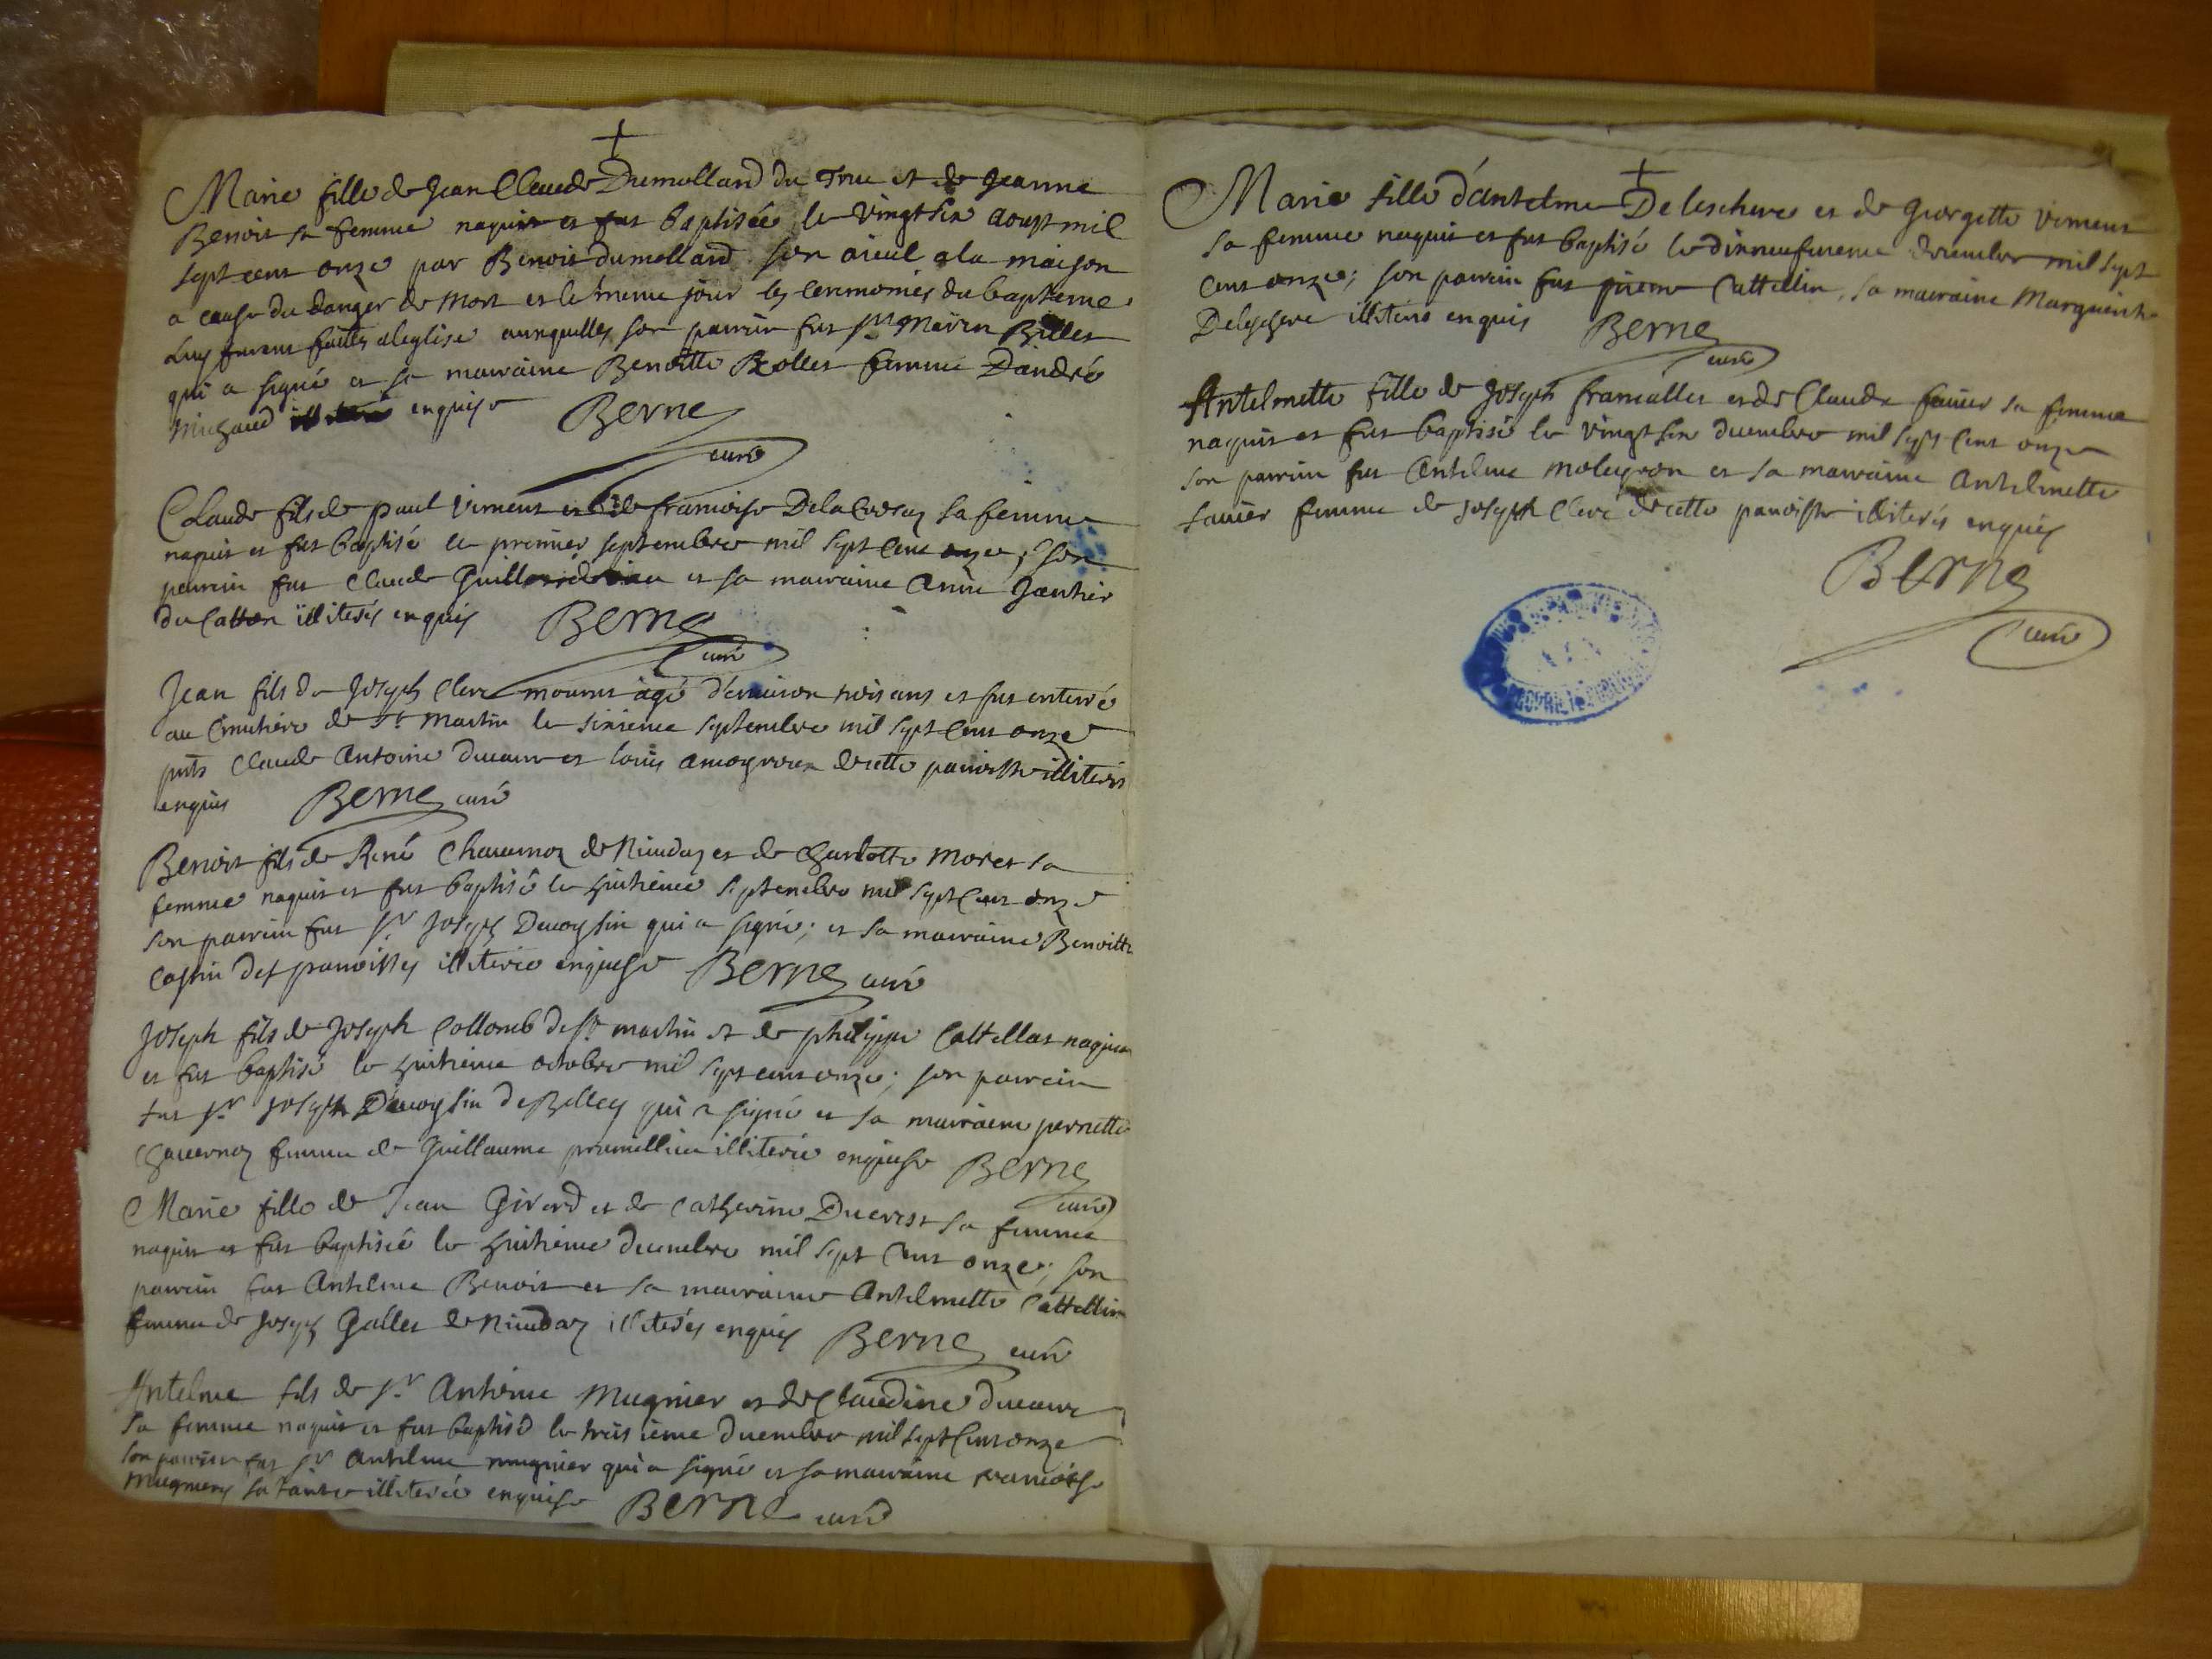 Marie fille de Jean Claude Dumollard du Truc et de Jeanne
Benoit sa femme naquit et fut baptisée le vingt six aoust mil
sept cent onze par Benoit dumollard son aieul a la maison
a cause du danger de mort et le meme jour les ceremonies du bapteme
luy furent faittes a leglise auxquelles son parrin fut sr Billet
qui a signé et sa marraine Benoitte Rollet femme D'andré
michaud enquise Berne
curé
Claude fils de paul viment et de francoise Dela sa femme
naquit et fut baptisé le premier septembre mil sept cent onze; son
parrin fut Claude et sa marraine Anne Gantier
du Catton illiterés enquis Berne
curé
Jean fils de Joseph Clerc mourut agé d'environ trois ans et fut enterré
au Cimetiere de St Martin le sixieme septembre mil sept cent onze
pnts Claude Antoine et louis de cette parroisse illiterés
enquis Berne curé
Benoit fils de René de et de Charlotte Moret sa
femme naquit et fut baptisé le huitieme septembre mil sept cent onze
son parrin fut sr Joseph qui a signé; et sa marraine Benoitte
illiterée enquise Berne curé
Joseph fils de Joseph Collomb de St martin et de philippe Cattellat naquit
et fut baptisé le huitieme octobre mil sept cent onze; son parrein
fut sr Joseph de Belley qui a signé et sa marraine pernette
femme de Guillaume illiterée enquise Berne
curé
Marie fille de Jean Girord et de Catherine Ducrest sa femme
naquit et fut baptisée le huitieme decembre mil sept cent onze; son
parrin fut Antelme Benoit et sa marraine Antelmette Cattellin
femme de Joseph Gallet de illiterés enquis Berne curé
Antelme fils de sr Antoine Mugnier et de Claudine
sa femme naquit et fut baptisé le trois ieme decembre mil sept cent onze
son parrin fut sr Antelme mugnier qui a signé et sa marraine francoise
sa tante illiterée enquise Berne curé
Marie fille d'antelme Deleschere et de Georgette viment
sa femme naquit et fut baptisé le dixneufvieme decembre mil sept
cent onze; son parrein fut pierre Cattellin, sa marraine Marguerite
Deleschere illiterés enquis Berne
curé
Antelmette fille de Joseph francallet et de Claude favier sa femme
naquit et fut baptisé le vingt six decembre mil sept cent onze
son parrin fut Antelme moleyron et sa marraine Antelmette
favier femme de Joseph Clerc de cette paroisse illiterés enquis
Berne
curé